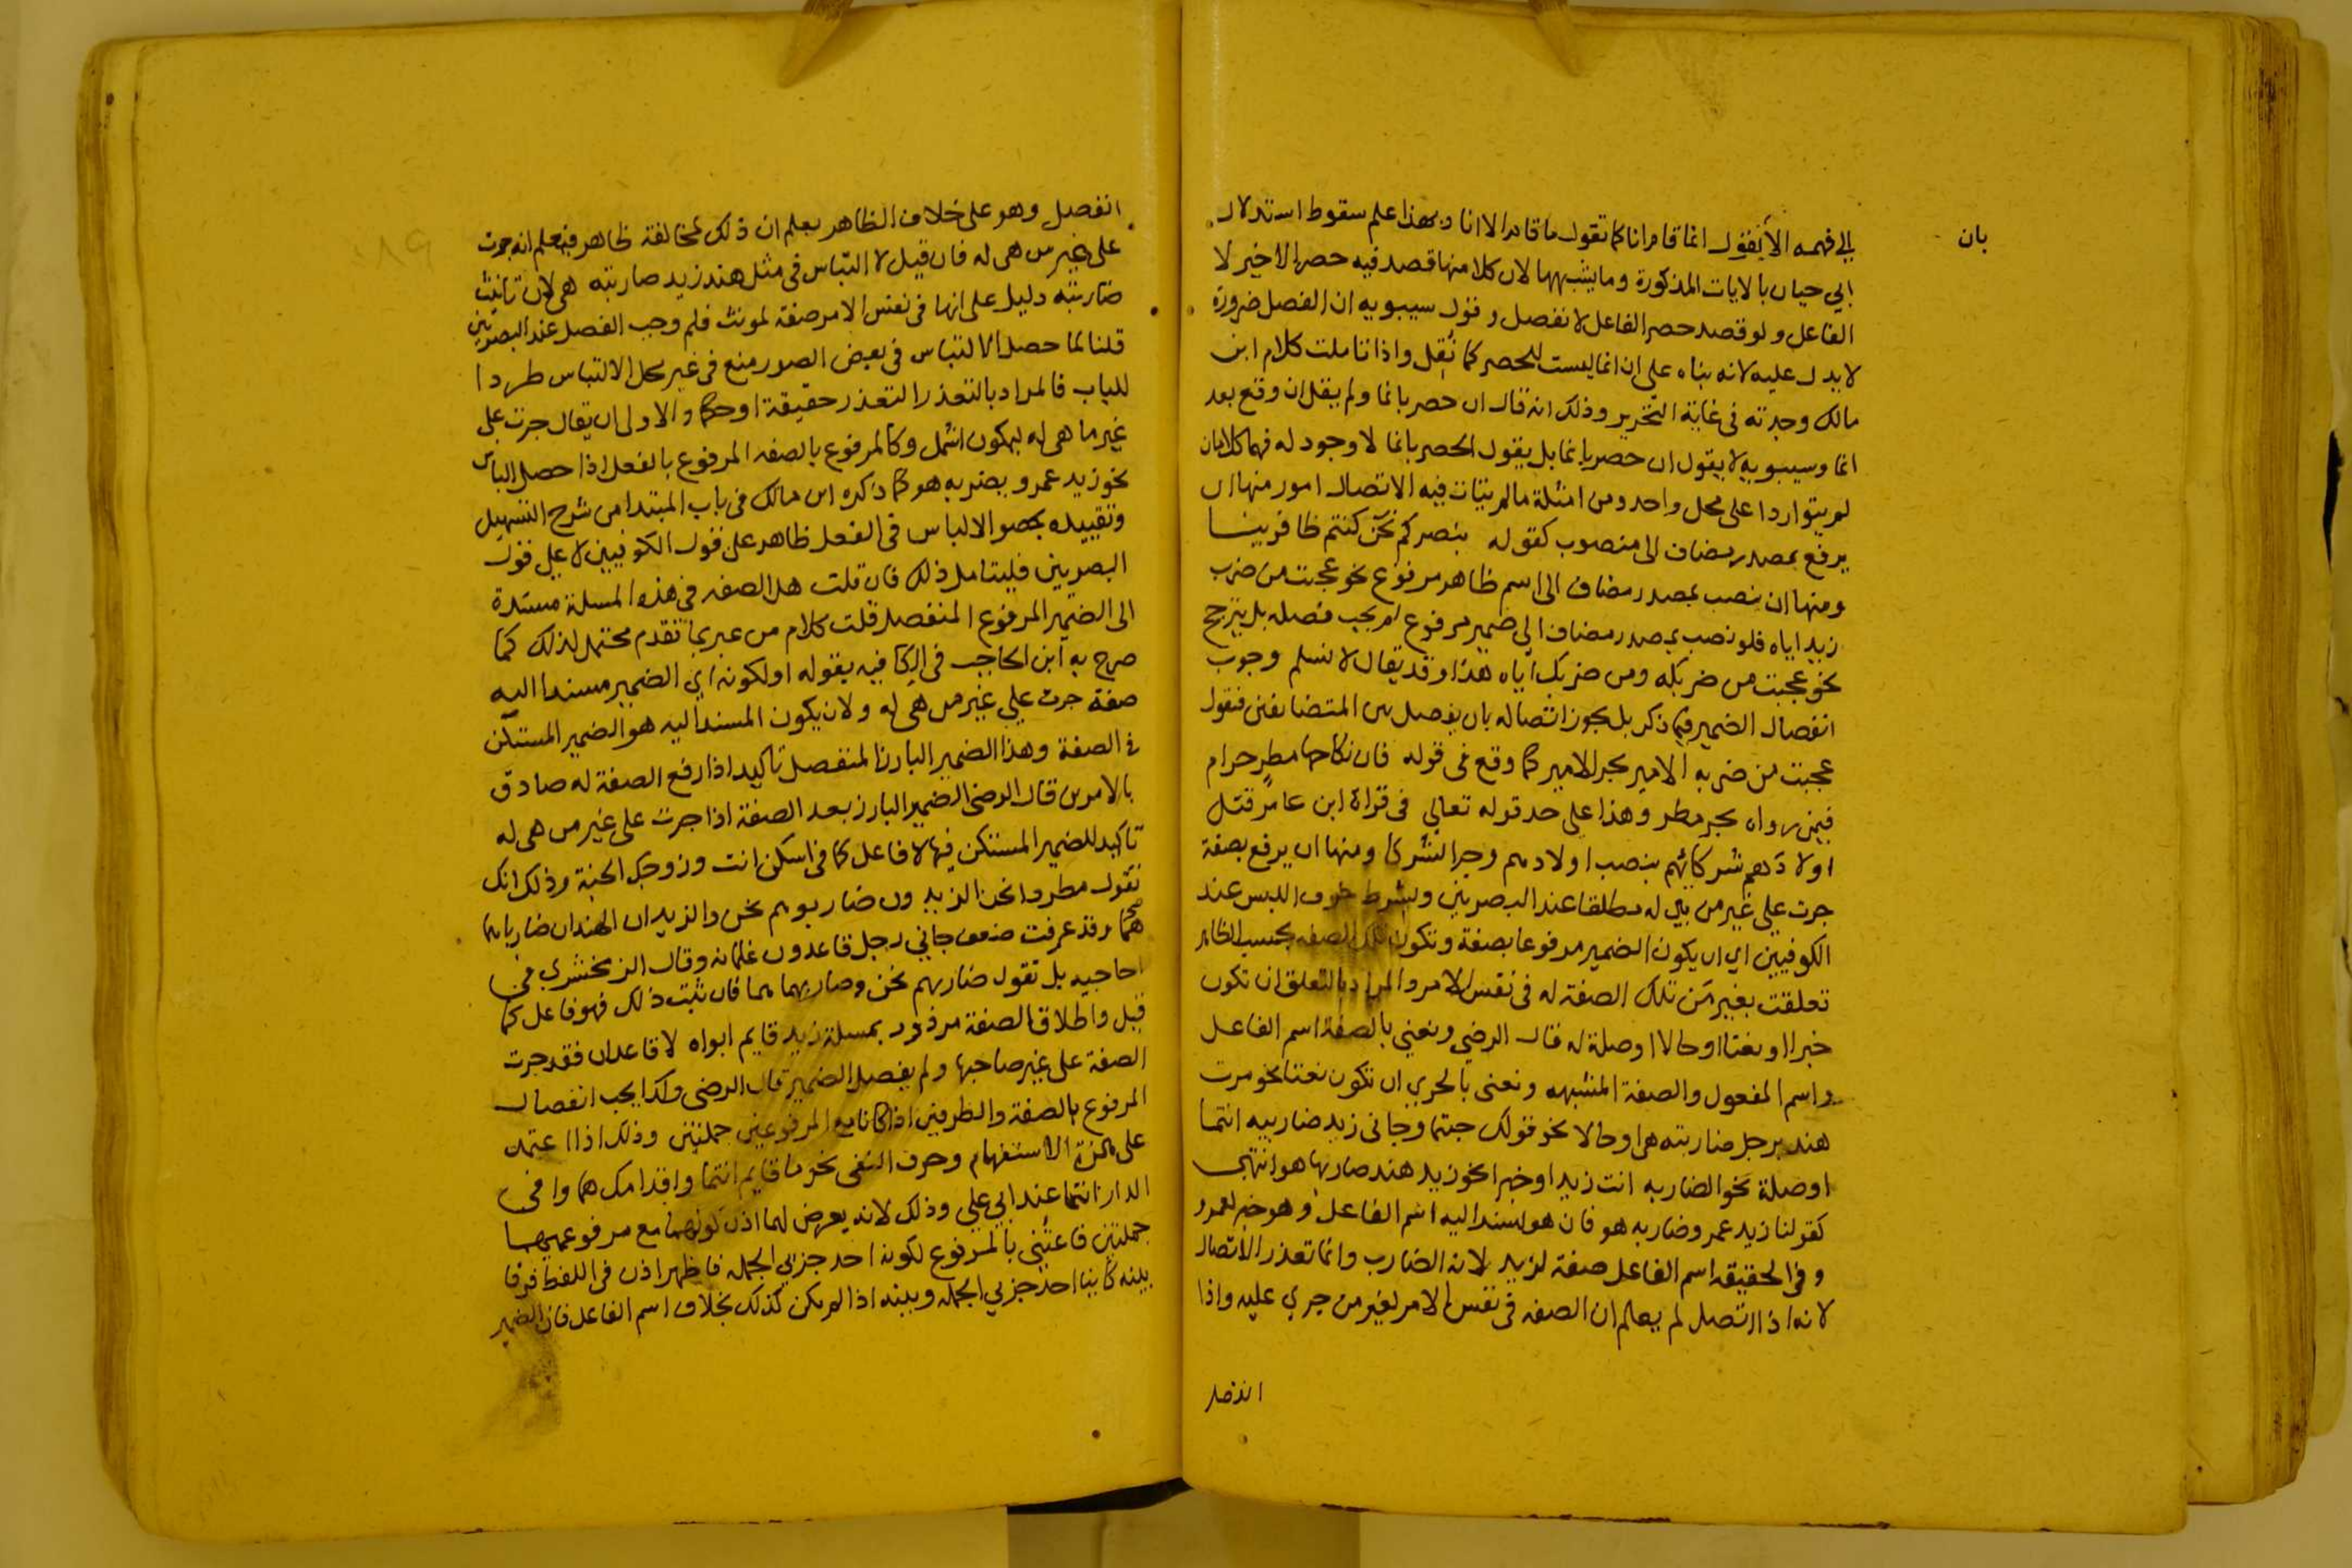 بان
الي فهمه الا يقول انما قام انا كما تقول ما قام الا انا وبهذا علم سقوط استدلال
ابي حيان بالايات المذكورة وما يشبهها لان كلا منها قصد فيه حصر الاخير لا
الفاعل ولو قصد حصر الفاعل لانفصل وقول سيبويه ان الفصل ضرورة
لا يدل عليه لانه بناه على ان انما ليست للحصر كما نُقِل واذا تاملت كلام ابن
مالك وجدته في غاية التحرير وذلك انه قال ان حصر بانما ولم يقل ان وقع بعد
انما وسيبويه لا يقول ان حصر بانما بل يقول الحصر بانما لا وجود له فهما كلامان
لم يتواردا على محل واحد ومن امثلة ما لم يتات فيه الاتصال امور منها ان
يرفع بمصدر مضاف الى منصوب كقوله بنصركم نحن كنتم ظافرينا
ومنها ان ينصب بمصدر مضاف الى اسم ظاهر مرفوع نحو عجبت من ضرب
زيد اياه فلو نصب بمصدر مضاف الي ضمير مرفوع لم يجب فصله بل يترجح
نحو عجبت من ضربكه ومن ضربك اياه هذا وقد يقال لا نسلم وجوب
انفصال الضمير فيما ذكر بل يجوز اتصاله بان يفصل بين المتضايفين فنقول
عجبت من ضربه الامير بجر الامير كما وقع في قوله فان نكاحها مطر حرام
فيمن رواه بجر مطر وهذا على حد قوله تعالي في قراة ابن عامر قتل
اولادَهم شركائهم بنصب اولادهم وجر الشركا ومنها ان يرفع بصفة
جرت علي غير من هي له مطلقا عند البصريين وبشرط خوف اللبس عند
الكوفيين اي ان يكون الضمير مرفوعا بصفة وتكون تلك الصفه بحسب الظاهر
تعلقت بغير مَن تلك الصفة له في نفس الامر والمراد بالتعلق ان تكون
خبرا او نعتا او حالا او صلة له قال الرضي ونعني بالصفة اسم الفاعل
واسم المفعول والصفة المشبهه ونعنى بالجري ان تكون نعتا نحو مررت
هند برجل ضاربته هي او حالا نحو قولك جئتما وجاني زيد ضاربيه انتما
او صلة نحو الضاربه انت زيد او خبرا نحو زيد هند ضاربها هو انتهى
كقولنا زيد عمرو ضاربه هو فان هو اسند اليه اسم الفاعل وهو خبر لعمرو
وفي الحقيقه اسم الفاعل صفة لزيد لانه الضارب وانما تعذر الاتصال
لانه اذا اتصل لم يعلم ان الصفه في نفس الامر لغير من جري عليه واذا
انفصل
انفصل وهو على خلاف الظاهر يعلم ان ذلك لمخالفة ظاهر فيعلم انه جرت
على غير من هى له فان قيل لا التباس في مثل هند زيد ضاربته هي لان تانيث
ضاربته دليل على انها في نفس الامر صفة لمونث فلم وجب الفصل عند البصريين
قلنا لما حصل الالتباس في بعض الصور منع في غير محل الالتباس طردا
للباب فالمراد بالتعذر التعذر حقيقة او حكما والاولى ان يقال جرت على
غير ما هى له ليكون اشمل وكالمرفوع بالصفه المرفوع بالفعل اذا حصل الباس
نحو زيد عمرو يضربه هو كما ذكره ابن مالك في باب المبتدا من شرح التسهيل
وتقييده بحصول الالباس في الفعل ظاهر على قول الكوفيين لا على قول
البصريين فليتامل ذلك فان قلت هل الصفه في هذه المسلة مسندة
الى الضمير المرفوع المنفصل قلت كلام من عبر بما تقدم محتمل لذلك كما
صرح به ابن الحاجب في الكافيه بقوله او لكونه اي الضمير مسندا اليه
صفة جرت علي غير من هي له ولان يكون المسند اليه هو الضمير المستكن
في الصفة وهذا الضمير البارز المنفصل تاكيد اذ ارفع الصفة له صادق
بالامرين قال الرضى الضمير البارز بعد الصفة اذا جرت على غير من هى له
تاكيد للضمير المستكن فيها لا فاعل كما في اسكن انت وزوجك الجنة وذلك انك
تقول مطردا نحن الزيدون ضاربوهم نحن والزيدان الهندان ضارباهما
هما وقد عرفت ضعف جاني رجل قاعدون غلمانه وقال الزمخشري في
احاجيه بل تقول ضاربهم نحن وضاربهما هما فان ثبت ذلك فهو فاعل كما
قيل واطلاق الصفة مردود بمسلة زيد قايم ابواه لا قاعدان فقد جرت
الصفة على غير صاحبها ولم يفصل الضمير قال الرضى وكذا يجب انفصال
المرفوع بالصفة والظرفين اذا كانا مع المرفوعين جملتين وذلك اذا اعتمد
على همزة الاستفهام وحرف النفى نحو ما قايم انتما واقدامك هما وافى
الدار انتما عند ابي علي وذلك لانه يعرض لهما اذن كونهما مع مرفوعهما
جملتين فاعتنى بالمرفوع لكونه احد جزئي الجمله فاظهر اذن في اللفظ فرقا
بينه كاينا احد جزئي الجمله وبينه اذا لم يكن كذلك بخلاف اسم الفاعل فان الضمير